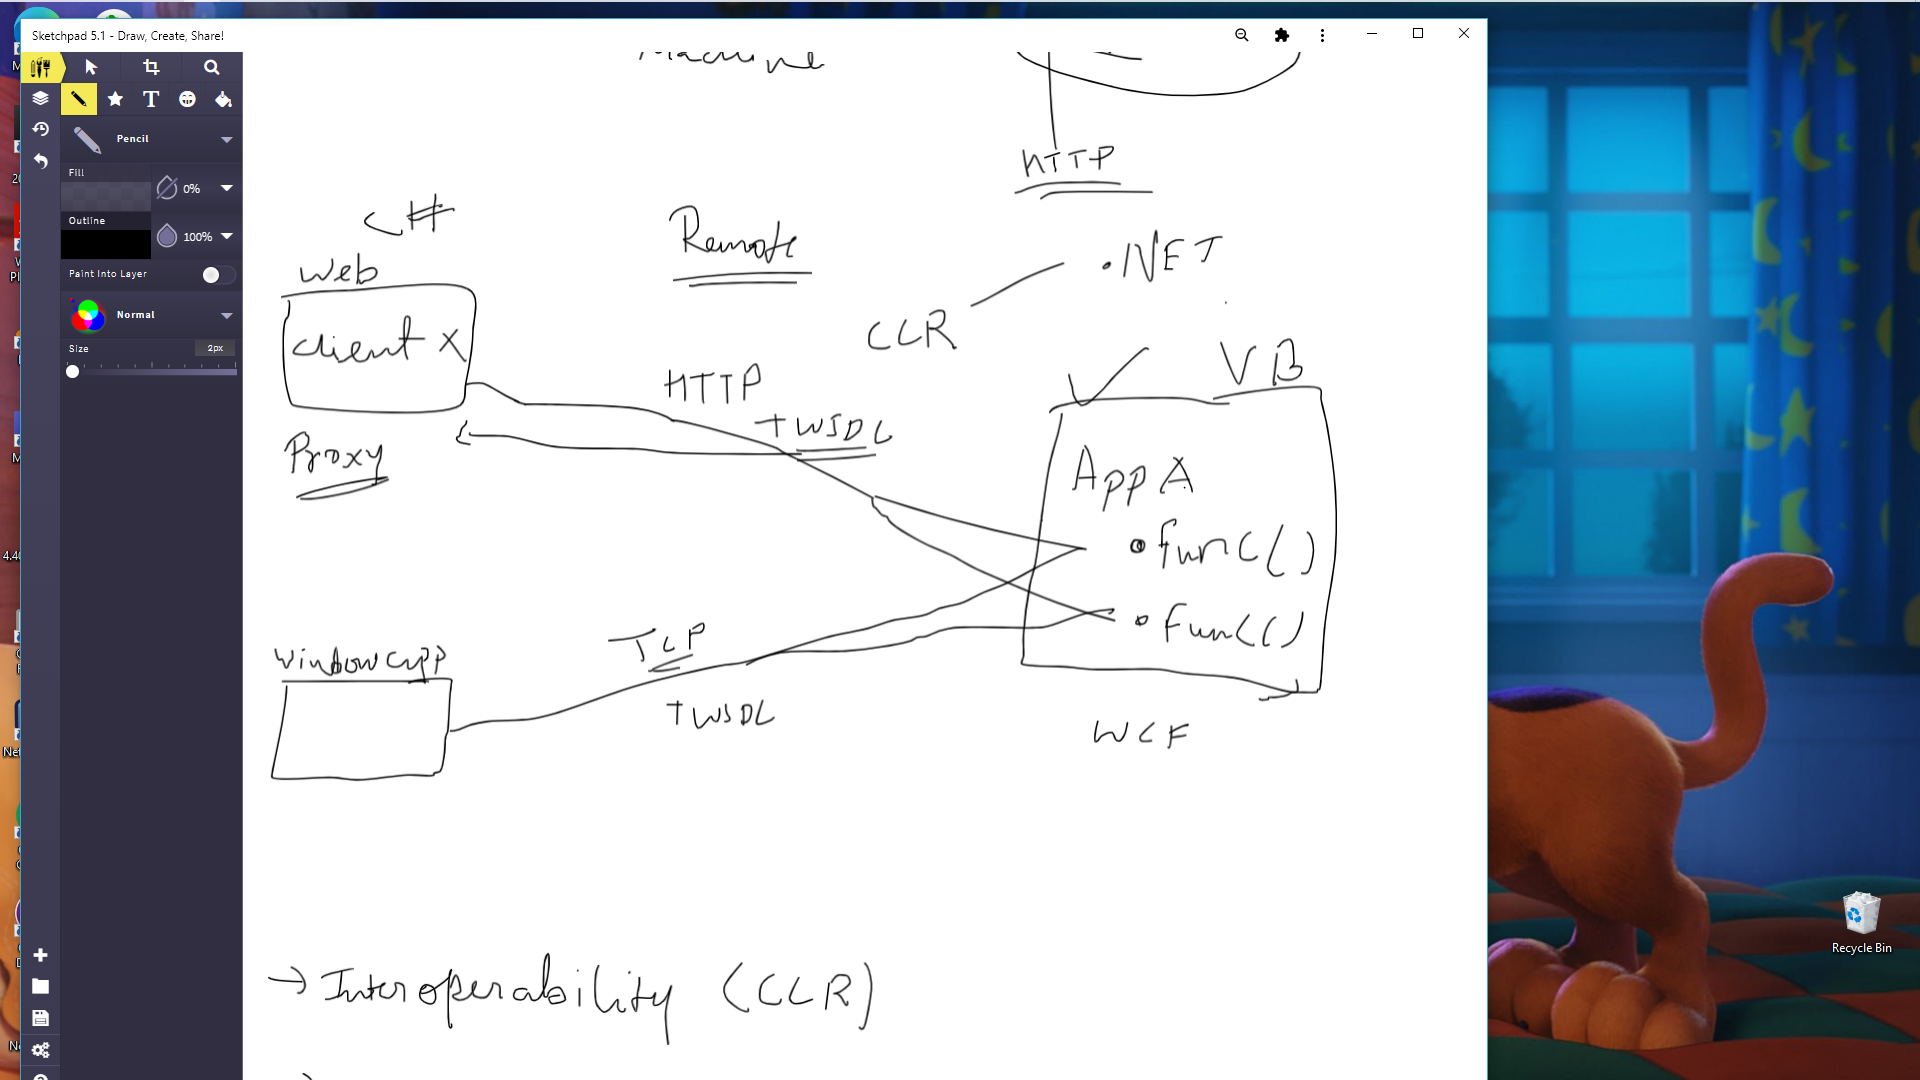 Sketchpad 5.1 - Draw, Create, Share!
Machine
T
Pencil
Fill
0%
Outline
100%
Paint Into Layer
Normal
Size
2px
HTTP
C#
Remote
.NET
Web
CLR
Client X
VB
HTTP
+ WSDL
Proxy
App A
• func()
• func()
TCP
Window app
+ WSDL
WCF
→ Interoperability (CLR)
Recycle Bin
4.40
Net